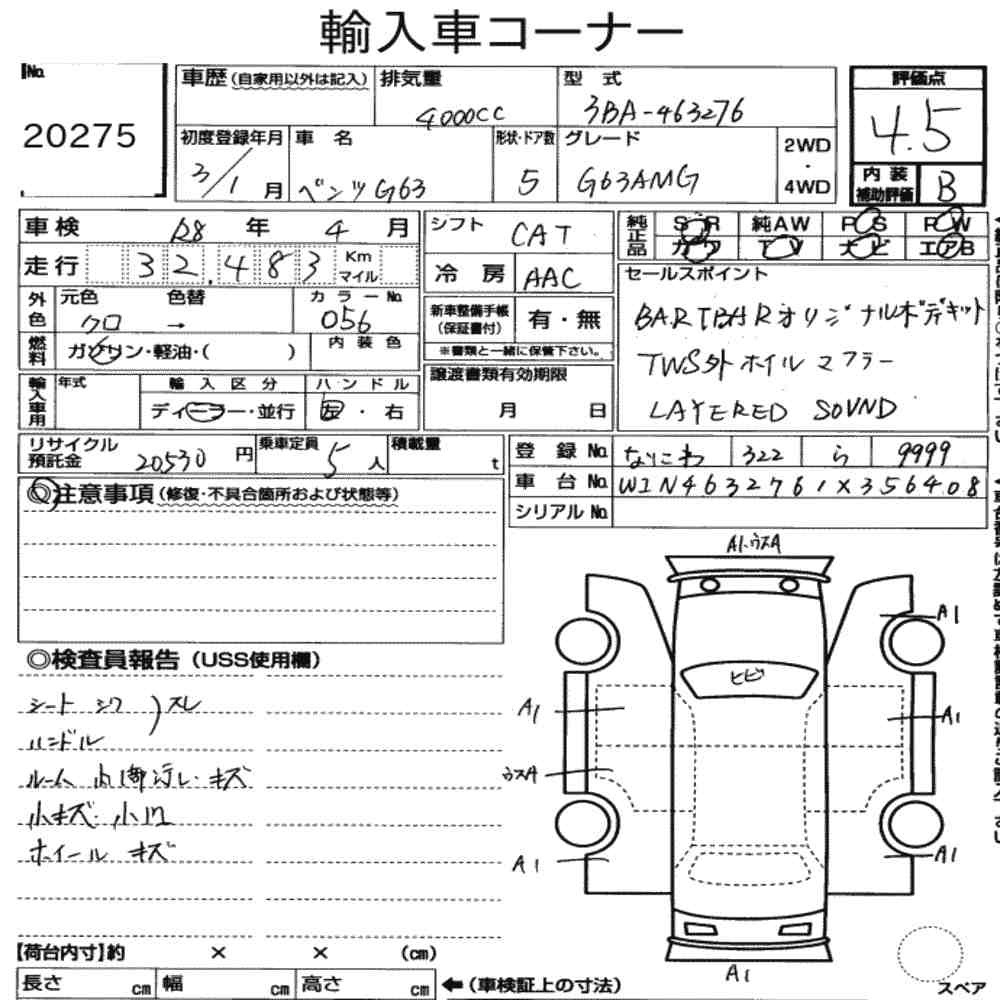 輸入車コーナー
No. 20275
車歴 (自家用以外は記入) 排気量 4000CC 型 式 3BA-463276
評価点 4.5
初度登録年月 3/1月 車 名 ベンツG63 形状・ドア数 5 グレード G63AMG 2WD・4WD
内装補助評価 B
車検 R8 年 4 月 シフト CAT
純正品 SR 純AW PS PW
カワ TV ナビ エアB
走行 32,483 Km マイル 冷房 AAC
セールスポイント
BARTBARオリジナルボディキット
TWS外ホイル マフラー
LAYERED SOUND
外色 元色 クロ 色替 → カラーNo. 056
新車整備手帳(保証書付) 有・無
※書類と一緒に保管下さい。
燃料 ガソリン・軽油・( ) 内装色
輸入車用 年式 輸入区分 ディーラー・並行 ハンドル 左・右
譲渡書類有効期限 月 日
リサイクル預託金 20530円 乗車定員 5人 積載量 t
登録No. なにわ 322 ら 9999
車台No. W1N4632761X356408
シリアルNo.
◎注意事項(修復・不具合箇所および状態等)
◎検査員報告(USS使用欄)
シート シワ )スレ
ハンドル
ルーム 内張汚レ・キズ
小キズ・小凹
ホイール キズ
A1・ウスA
A1
ヒビ
A1
A1
ウスA
A1
A1
A1
【荷台内寸】約 × × (cm)
長さ cm 幅 cm 高さ cm ←(車検証上の寸法)
スペア